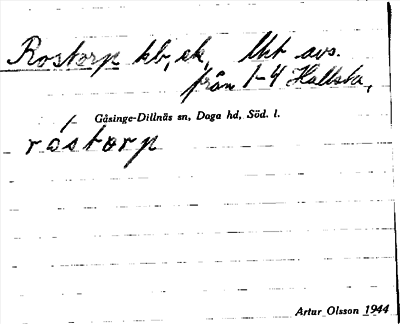 Rostorp kb, ek, lht avs.
från 1-4 Hallsta,
Gåsinge-Dillnäs sn, Daga hd, Söd. l.
róstorp
Artur Olsson 1944